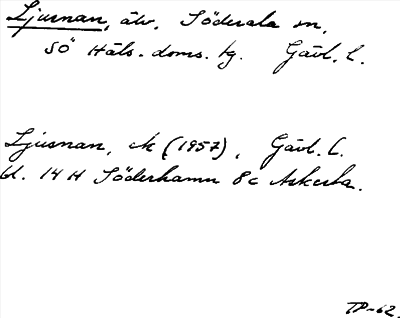 Ljusnan, älv. Söderala sn,
SÖ Häls. doms. tg. Gävl. l.
Ljusnan, ek (1957), Gävl. l.
bl. 14 H Söderhamn 8c Askesta.
TP-62.